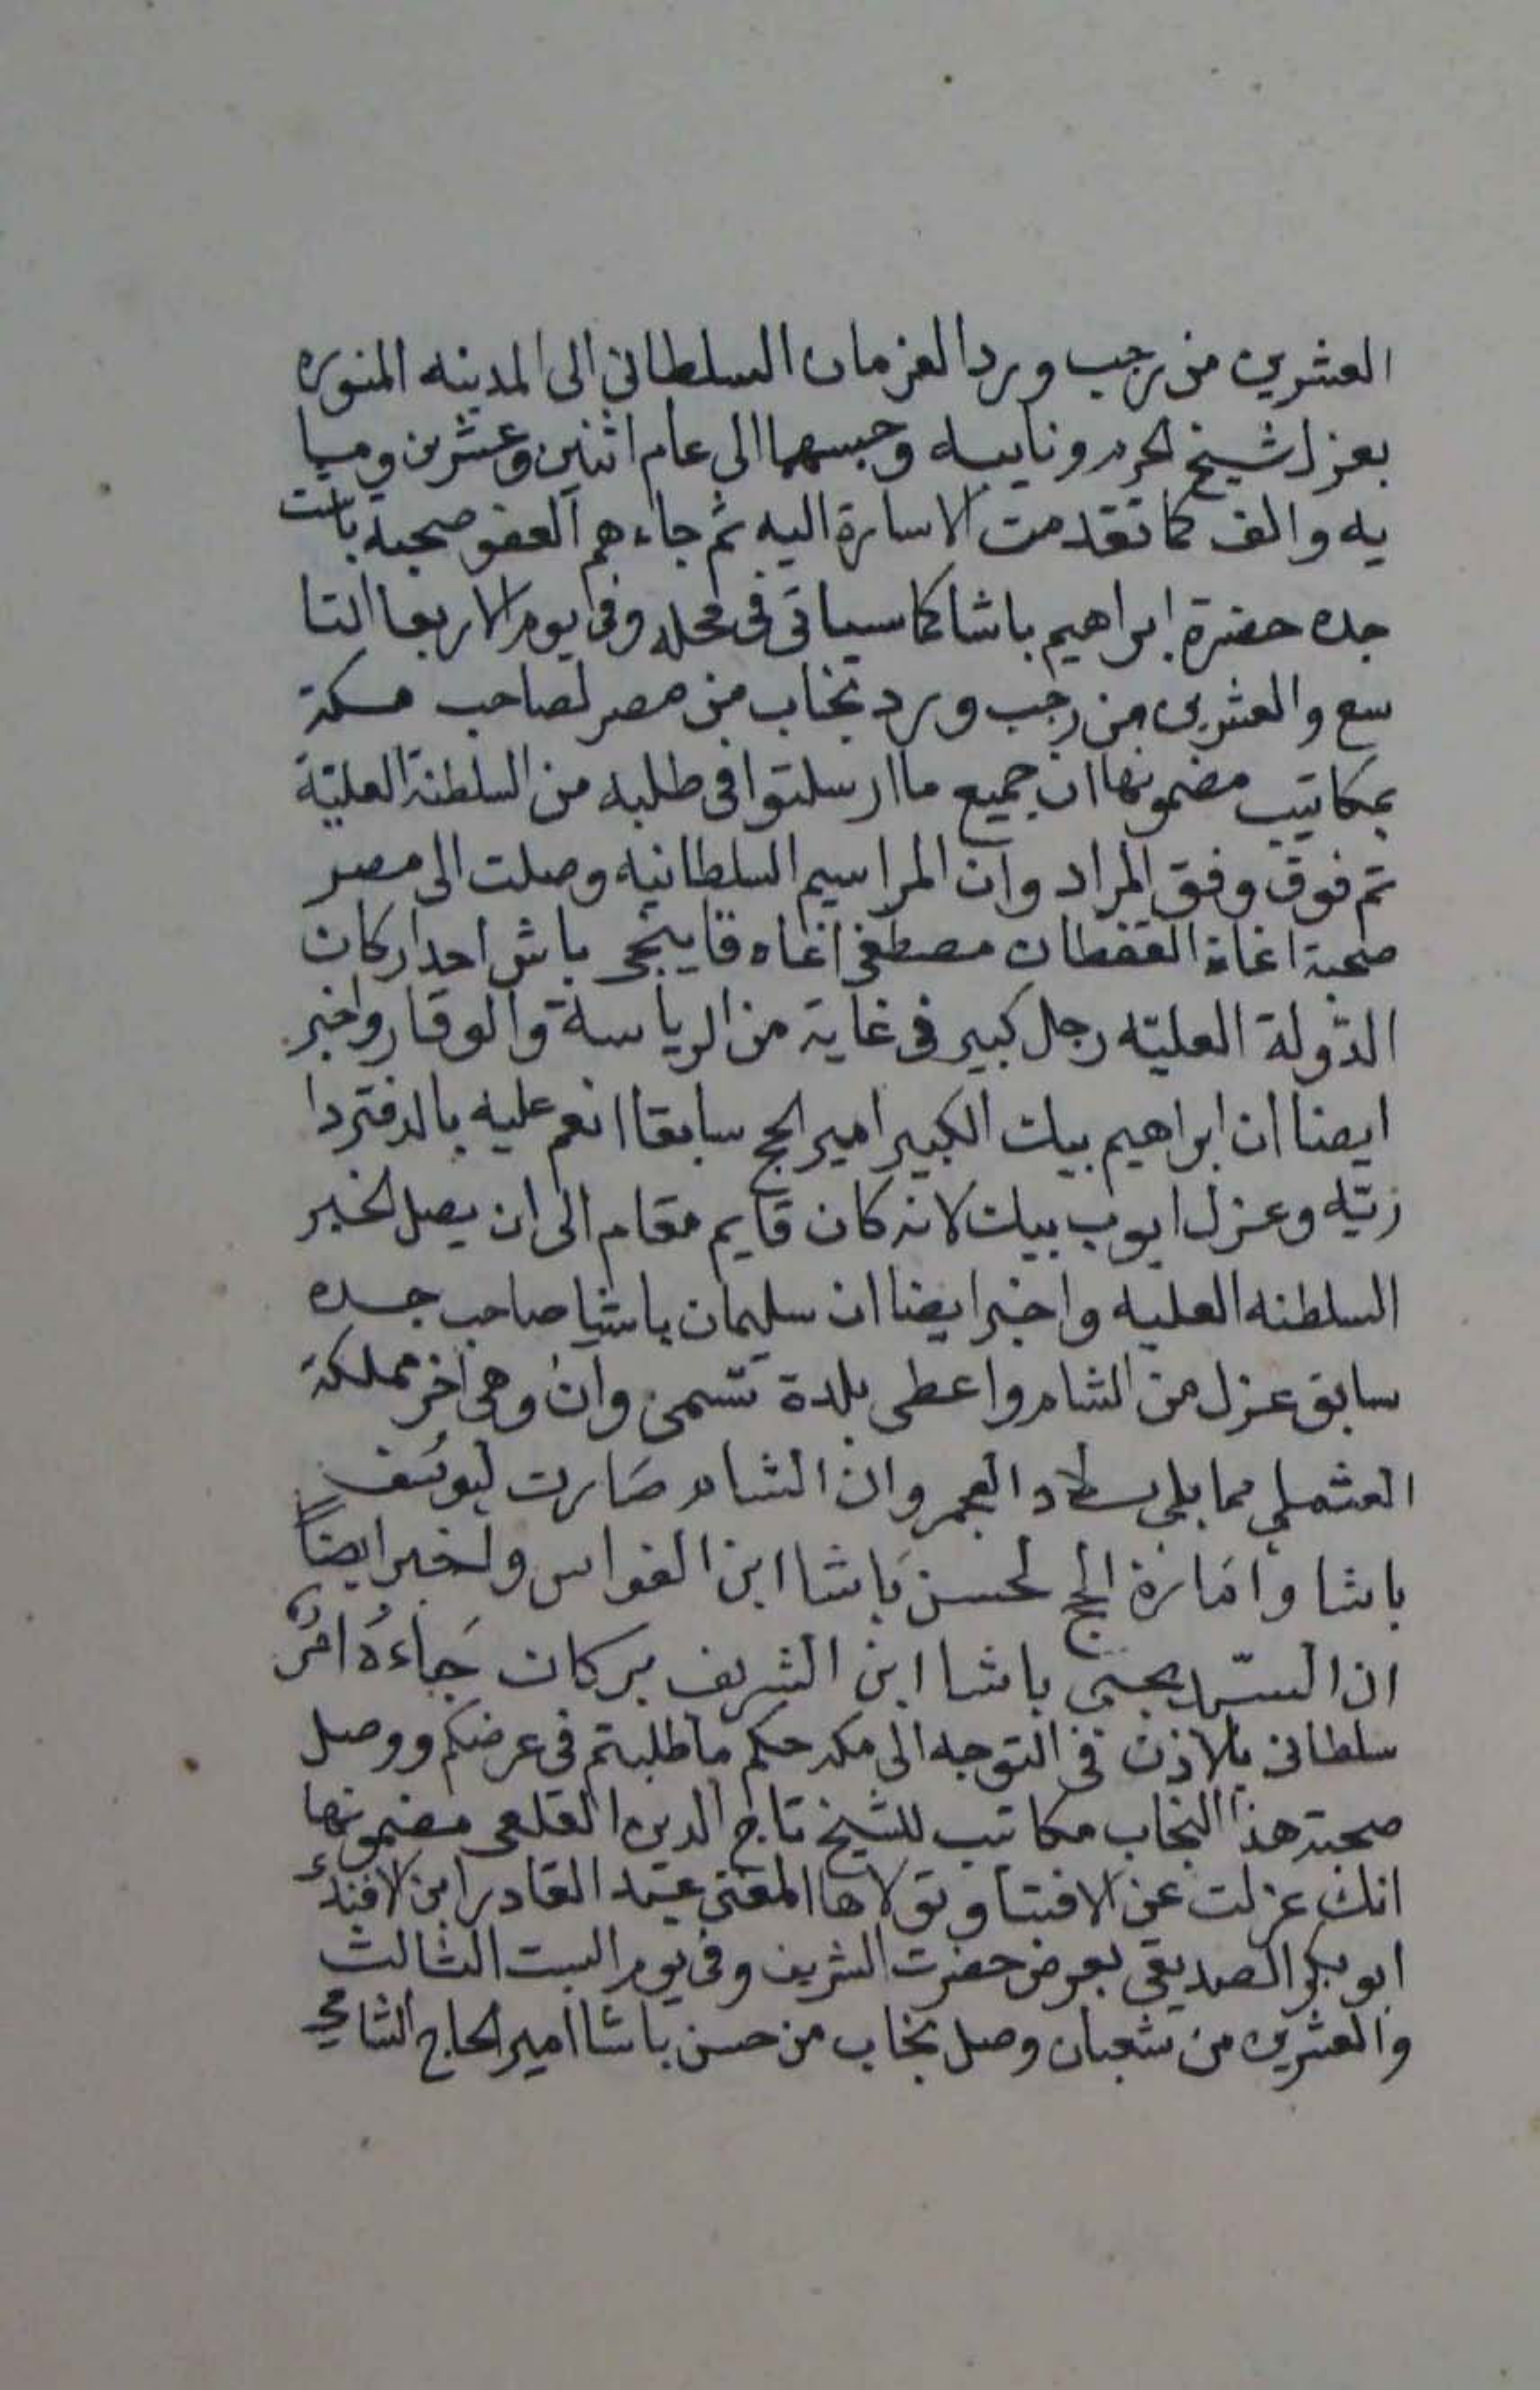 العشرين من رجب ورد الفرمان السلطاني الى المدينه المنوره
بعزل شيخ الحرم ونايبه وحبسهما الى عام اثنين وعشرين وميا
يه والف كما تقدمت الاسارة اليه ثم جاءهم العفو صحبة باشت
جده حضرة ابراهيم باشا كما سياتى فى محله وفى يوم الاربعا التا
سع والعشرين من رجب ورد نجاب من مصر لصاحب مكة
بمكاتيب مضمونها ان جميع ما ارسلتوا فى طلبه من السلطنة العليّة
تم فوق وفق المراد وان المراسيم السلطانيه وصلت الى مصر
صحبة اغاة القفطان مصطفى اغاه قابيجى باش احد اركان
الدّولة العليّه رجل كبير فى غاية من الرياسة والوقار واخبر
ايضا ان ابراهيم بيك الكبير امير الحج سابقا انعم عليه بالدفتردا
ريّه وعزل ايوب بيك لانه كان قايم مقام الى ان يصل الخبر
السلطنه العليه واخبر ايضا ان سليمان باشا صاحب جده
سابق عزل من الشام واعطى بلدة تسمى وان وهى اخر مملكة
العثملي مما يلي بلاد العجم وان الشام صَارت ليوسُف
باشا وامَارة الحج لحسن بَاشا ابن القواس واخبر ايضاً
ان السيّد يحيى باشا ابن الشريف بركات جَاءهُ امرٌ
سلطانى بالاذن فى التوجه الى مكه حكم ما طلبتم فى عرضكم ووصل
صحبة هذا النجاب مكاتيب للشيخ تاج الدين القلعى مضمونها
انك عزلت عن الافتا وتولاها المفتى عبد القادر ابن الافندى
ابو بكر الصديقي بعرض حضرت الشريف وفى يوم السبت الثالث
والعشرين من شعبان وصل نجاب من حسن باشا امير الحاج الشامي